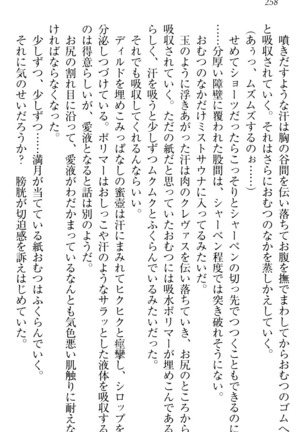 258
噴きだす汗は胸の谷間を伝い落ちてお腹を撫でまわしてからおむつのゴムへ
と吸収されていく。それはさらにおむつのなかを蒸しかえしていく。
(あっっ。ムズムズするのぉ……)
せめてショーツだったらこっそりとシャーペンの切っ先でつつくこともできるのに
……分厚い障壁に覆われた股間は、シャーペン程度では突き破れそうにない。
おむつのなかだけミストサウナに入ってるみたいだ。
玉のように浮きあがった汗は肉のクレヴァスを伝い落ちていき、お尻のところから
吸収されていく。ただの紙だと思っていたおむつには吸水ポリマーが埋めこんである
らしく、汗を吸うと少しずつムクムクとふくらんでいるみたいだ。
それでも吸収してくれるんならいい。
ディルドを埋めこみっぱなしの蜜壺は汗にまみれてヒクヒクと痙攣し、シロップを
分泌しつづけている。ポリマーはおしっこや汗のようなサラッとした液体を吸収する
のは得意らしいが、愛液となると話は別のようだ。
お尻の割れ目に沿って、愛液がわだかまっているなんとも気色悪い肌触りに耐えな
ければならなくなった。
少しずつ、少しずつ……満月が当てている紙おむつはふくらんでいく。
それに気のせいだろうか? 膀胱が切迫感を訴えはじめていた。